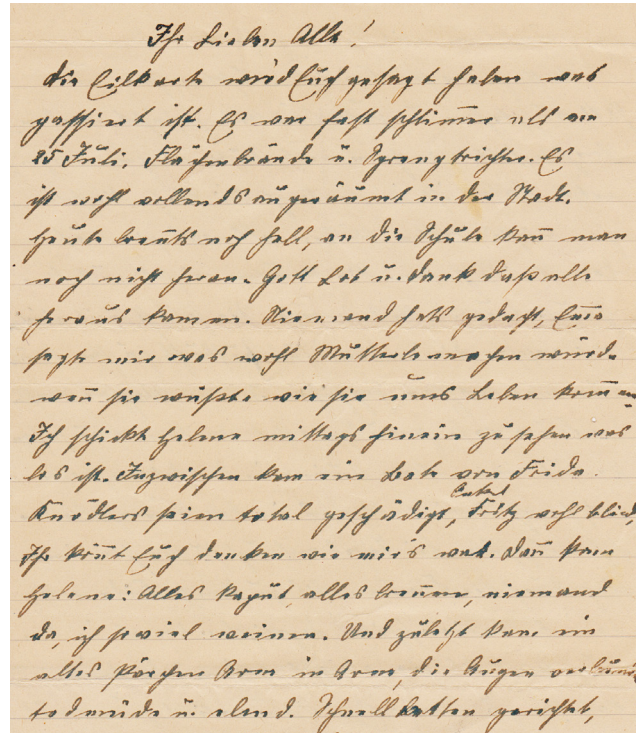 Ihr Lieben Alle!
die Eilkarte wird Euch gesagt haben was
passiert ist. Es war fast schlimmer als am
25 Juli. Flächenbrände u. Sprengtrichter. Es
ist wohl vollends aufgeräumt in der Stadt.
Heute brennts noch hell, an die Schule kann man
noch nicht heran. Gott Lob u. Dank daß alle
heraus kamen. Niemand hats gedacht,
sagte mir was wohl Mutterle machen würde
wenn sie wüßte wie sie ums Leben
Ich schickt Helene mittags hinein zu sehen was
los ist. Inzwischen kam ein Bote von Frida
Knödlers seien total geschädigt, Onkel Fritz wohl blind,
Ihr könnt Euch denken wie mirs war. Dann kam
Helene: Alles kaput, alles brenne, niemand
da, ich soviel weinen. Und zuletzt kam ein
altes Pärchen Arm in Arm, die Augen
todmüde u. elend. Schnell Betten gerichtet,